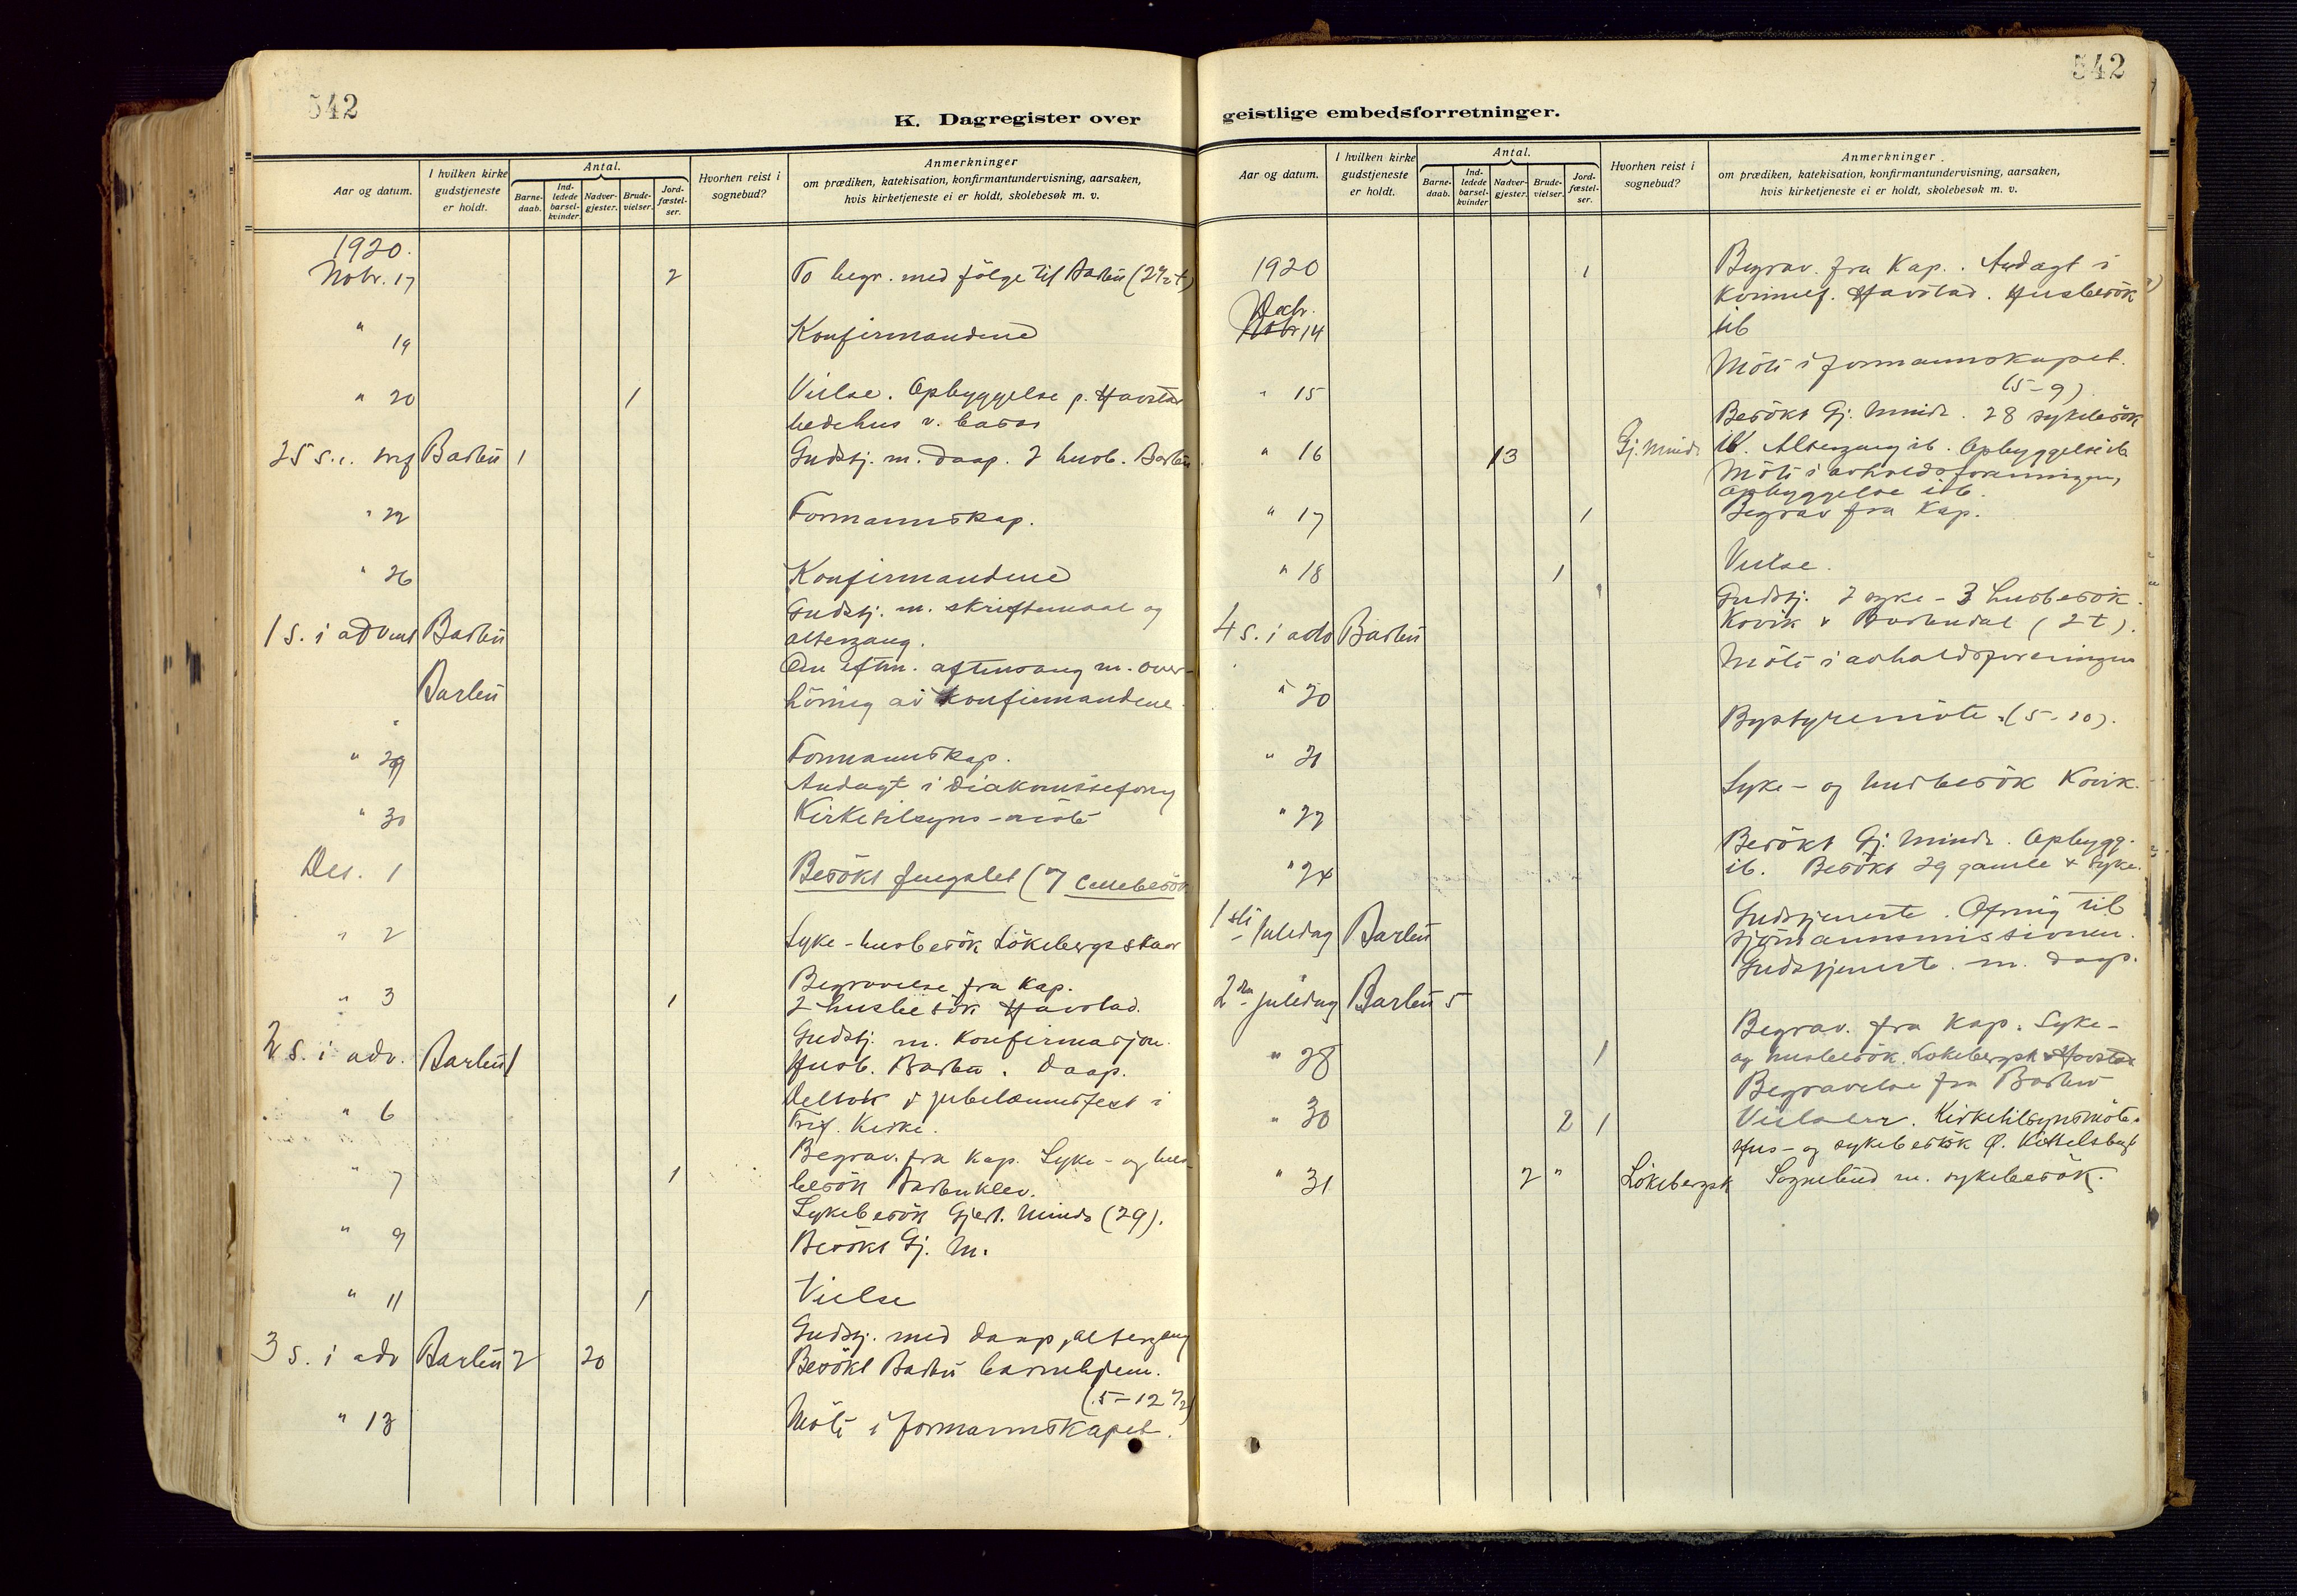 542
K. Dagregister over
Aar og datum.
I hvilken kirke gudstjeneste er holdt.
Antal.
Barne-daab.
Ind-ledede barsel-kvinder.
Nadver-gjester.
Brude-vielser.
Jord-fæstel-ser.
Hvorhen reist i sognebud?
Anmerkninger
om prædiken, katekisation, konfirmantundervisning, aarsaken,
hvis kirketjeneste ei er holdt, skolebesøk m. v.
1920.
Nobr. 17 2 To begr. med følge til Barbu (2 1/2 t)
" 19 Konfirmandene
" 20 1 Vielse. Opbyggelse p. Havstad
bedehus v. basar
25 s. e. tref Barbu 1 Gudstj. m. daap. 2 husb. Barbu
" 22 Formannskap.
" 26 Konfirmandene
1 s. i advent Barbu Gudstj. m. skriftemaal og
altergang.
Barbu Om eftm. aftensang m. over-
höring av konfirmandene.
" 29 Formannskap.
Andagt i Diakonisseforng
" 30 Kirketilsyns-möte
Des. 1 Besökt fengslet (7 cellebesök
" 2 Syke-husbesök Lökebergsskar
" 3 1 Begravelse fra Kap.
2 husbesök Havstad.
2 s. i adv. Barbu 1 Gudstj. m. konfirmasjon.
Husb. Barbu. Daap.
" 6 Deltok i jubelæumsfest i
Tref. Kirke.
" 7 1 Begrav. fra Kap. Syke- og hus-
besök Barbuklev.
Sykebesök Gjest. Minde (29).
" 9 Besökt Gj. M.
" 11 1 Vielse
3 s. i adv Barbu 2 20 Gudstj. med daap, altergang
Besökt Barbu barnehjem.
(5-12 1/2)
" 13 Möte i formannskapet.
542
geistlige embedsforretninger.
Aar og datum.
I hvilken kirke gudstjeneste er holdt.
Antal.
Barne-daab.
Ind-ledede barsel-kvinder
Nadver-gjester.
Brude-vielser.
Jord-fæstel-ser.
Hvorhen reist i sognebud?
Anmerkninger
om prædiken, katekisation, konfirmantundervisning, aarsaken,
hvis kirketjeneste ei er holdt, skolebesøk m. v.
1920 1 Begrav. fra Kap. Andagt i
Kvinnef. Havstad. Husbesök
Decbr.
Nobr 14 ib
Möte i formannskapet.
" 15 (5-9)
Besökt Gj. Minde. 28 sykebesök
" 16 13 Gj. Minde ib. Altergang ib. Opbyggelse ib
Möte i avholdsforeningen,
opbyggelse ib.
" 17 1 Begrav fra Kap.
" 18 1 Vielse.
Gudstj. 2 syke- 3 husbesök.
4 s. i adv Barbu Kovik & Barbudal (2 t).
Möte i avholdsforeningen
" 20
Bystyremöte. (5-10).
" 21
Syke- og husbesök Kovik.
" 22
Besökt Gj. Minde. Opbygg.
" 24 ib. Besökt 29 gamle & syke.
1ste juledag Barbu Gudstjeneste. Ofring til
sjömannsmissionen.
2den juledag Barbu 5 Gudstjeneste. m. daap.
" 28 1 Begrav. fra Kap. Syke-
og husbesök. Lökebergsk & Havstad
" 30 2 1 Begravelse fra Barbu
Vielser. Kirketilsynsmöte.
Hus- og sykebesök Ø. Kittelsbugt
" 31 2 " Lökebergsk Sognebud m. sykebesök.